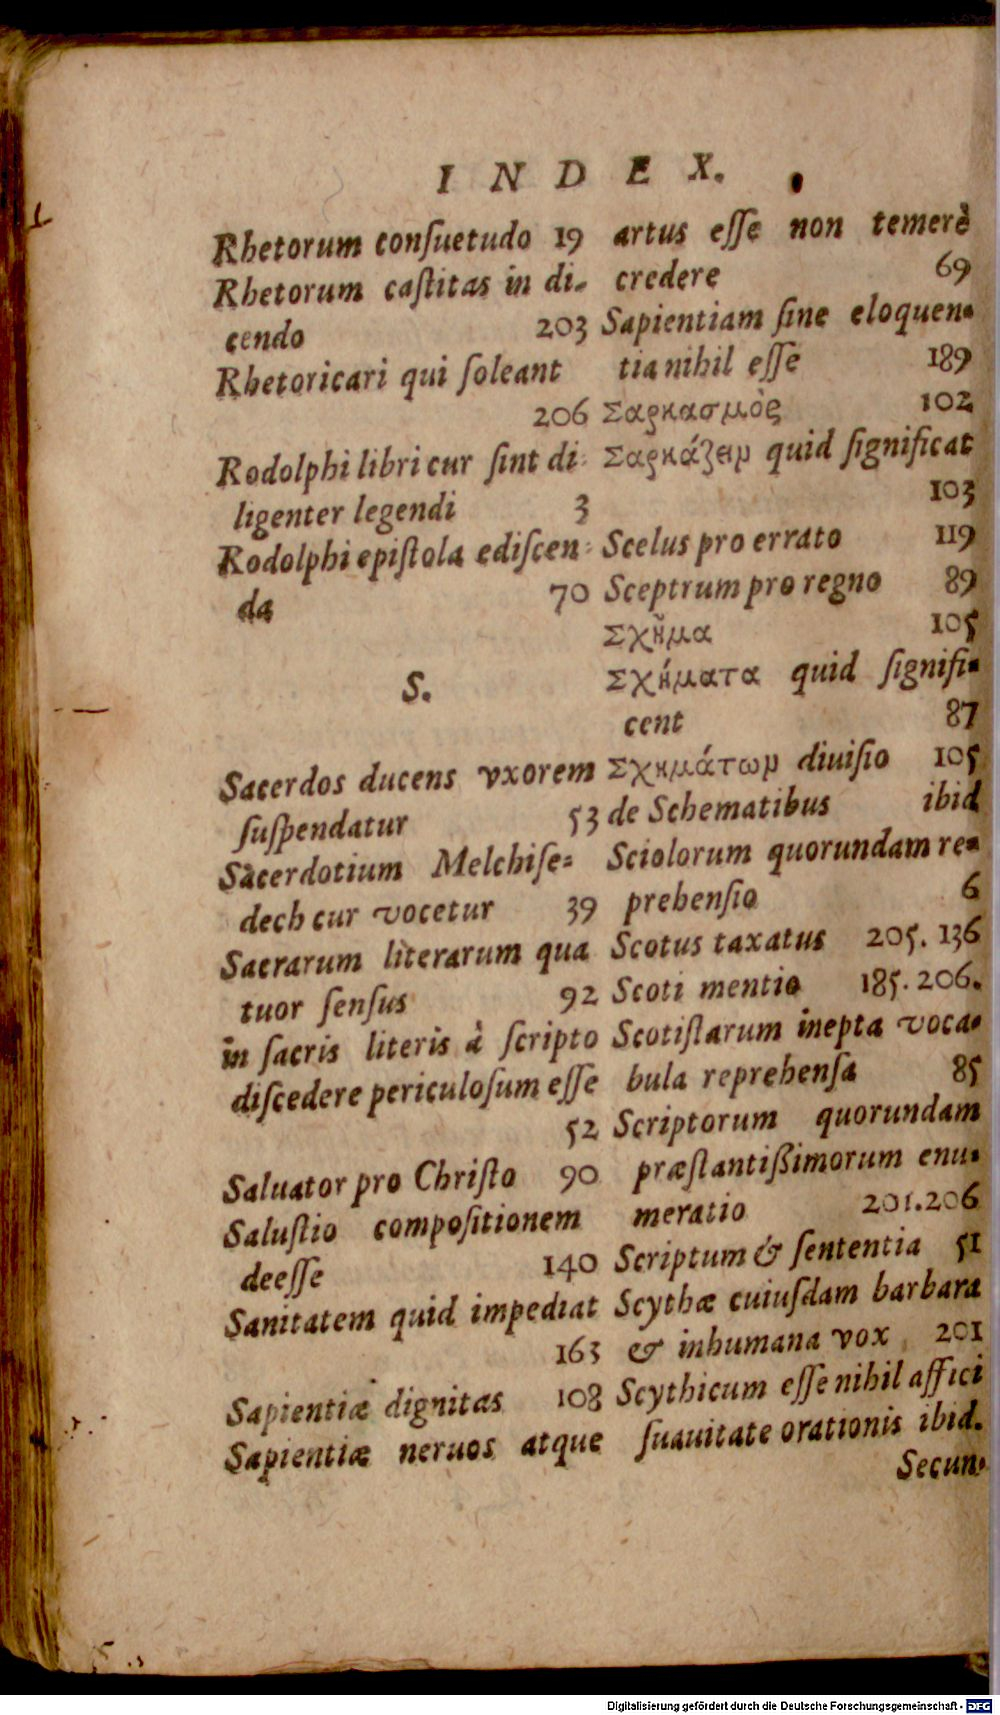 INDEX.
Rhetorum conſuetudo 19
Rhetorum caſtitas in di-
cendo 203
Rhetoricari qui ſoleant
206
Rodolphi libri cur ſint di-
ligenter legendi 3
Rodolphi epiſtola ediſcen-
da 70
S.
Sacerdos ducens vxorem
ſuſpendatur 53
Sacerdotium Melchiſe-
dech cur vocetur 39
Sacrarum literarum qua
tuor ſenſus 92
in ſacris literis à ſcripto
diſcedere periculoſum eſſe
52
Saluator pro Chriſto 90
Saluſtio compoſitionem
deeſſe 140
Sanitatem quid impediat
163
Sapientiæ dignitas 108
Sapientiæ neruos atque
artus eſſe non temerè
credere 69
Sapientiam ſine eloquen-
tia nihil eſſe 189
Σαρκασμὸς 102
Σαρκάζειν quid ſignificat
103
Scelus pro errato 119
Sceptrum pro regno 89
Σχῆμα 105
Σχήματα quid ſignifi-
cent 87
Σχημάτων diuiſio 105
de Schematibus ibid
Sciolorum quorundam re-
prehenſio 6
Scotus taxatus 205. 136
Scoti mentio 185. 206.
Scotiſtarum inepta voca-
bula reprehenſa 85
Scriptorum quorundam
præſtantißimorum enu-
meratio 201.206
Scriptum & ſententia 51
Scythæ cuiuſdam barbara
& inhumana vox 201
Scythicum eſſe nihil affici
ſuauitate orationis ibid.
Secun-
Digitalisierung gefördert durch die Deutsche Forschungsgemeinschaft - DFG